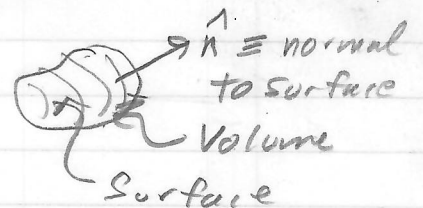 n̂ ≡ normal
to surface
Volume
Surface